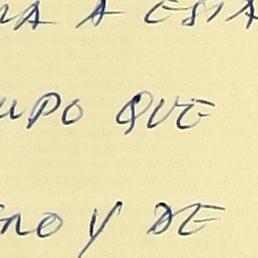 RA A ESTA
UPO QUE
ERO Y DE